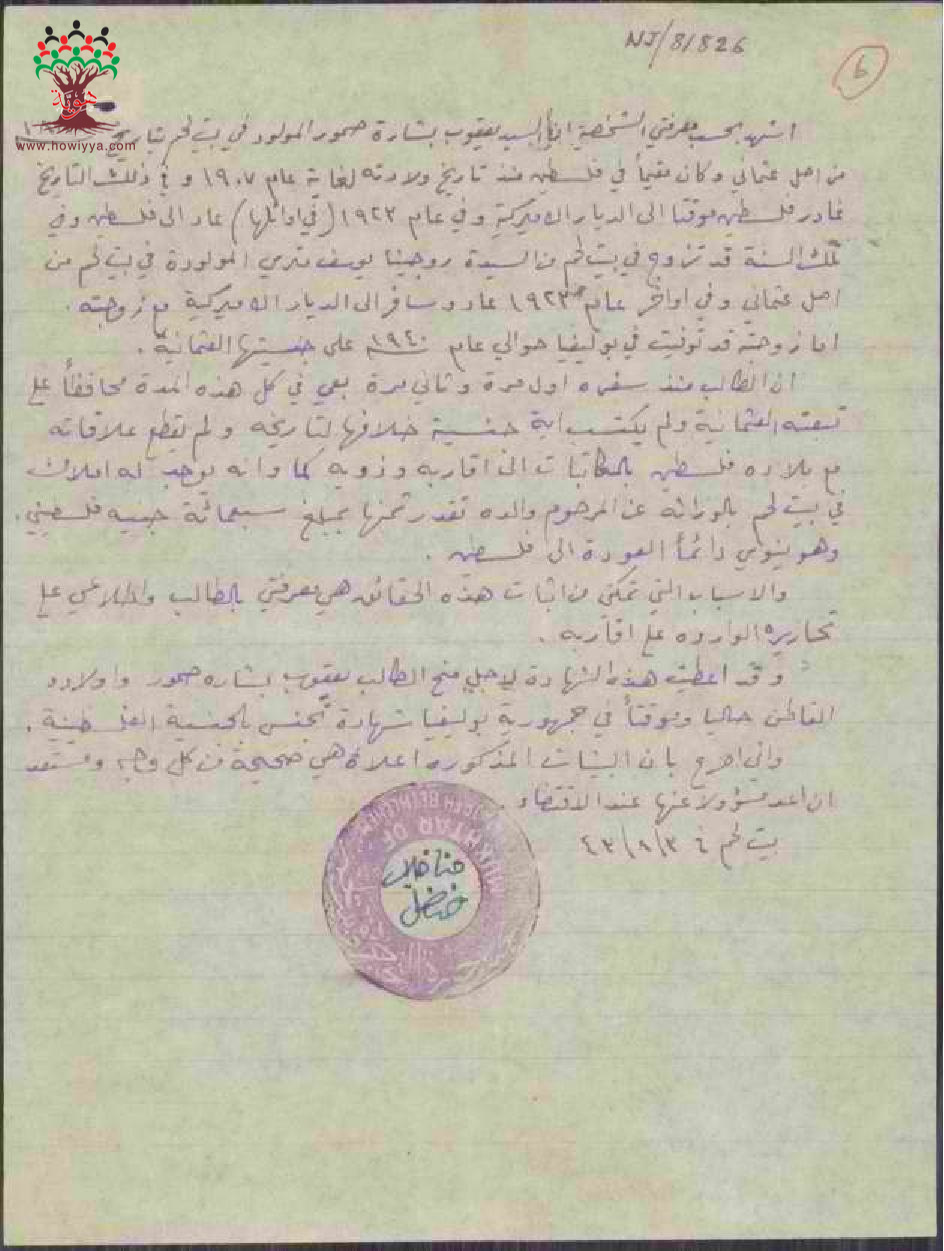 NJ/8/826
6
هوية
www.howiyya.com
اشهد بحسب معرفتي الشخصية ان السيد يعقوب بشارة صمور المولود في بيت لحم بتاريخ
من اصل عثماني وكان مقيماً في فلسطين منذ تاريخ ولادته لغاية عام ١٩٠٧ و في ذلك التاريخ
غادر فلسطين موقتا الى الديار الاميركية وفي عام ١٩٢٣ (في اوائلها) عاد الى فلسطين وفي
تلك السنة قد تزوج في بيت لحم من السيدة روجينا يوسف متري المولودة في بيت لحم من
اصل عثماني وفي اواخر عام ١٩٢٣ عاد وسافر الى الديار الاميركية مع زوجته .
اما زوجته قد توفيت في بوليفيا حوالي عام ١٩٤٠ على جنسيتها العثمانية .
ان الطالب منذ سفره اول مرة وثاني مرة بقي في كل هذه المدة محافظاً على
تبعته العثمانية ولم يكتسب اية جنسية خلافها لتاريخه ولم يقطع علاقاته
مع بلاده فلسطين بالمكاتبات الى اقاربه وذويه كما وانه يوجد له املاك
في بيت لحم بالوراثة عن المرحوم والده تقدر ثمنها بمبلغ سبعمائة جنيه فلسطيني .
وهو ينوي دائماً العودة الى فلسطين .
والاسباب التي تمكني من اثبات هذه الحقائق هي معرفتي بالطالب واطلاعي على
تحاريره الوارده على اقاربه .
وقد اعطيت هذه الشهادة لاجل منح الطالب يعقوب بشاره صمور واولاده
القاطن حاليا وموقتاً في جمهورية بوليفيا شهادة تجنس بالجنسية الفلسطينية .
واني اصرح بان البينات المذكوره اعلاه هي صحيحة من كل وجه ومستعد
ان اعد مسؤولا عنها عند الاقتضاء .
بيت لحم في
MUKHTAR OF
BETHLEHEM
حنا خليل